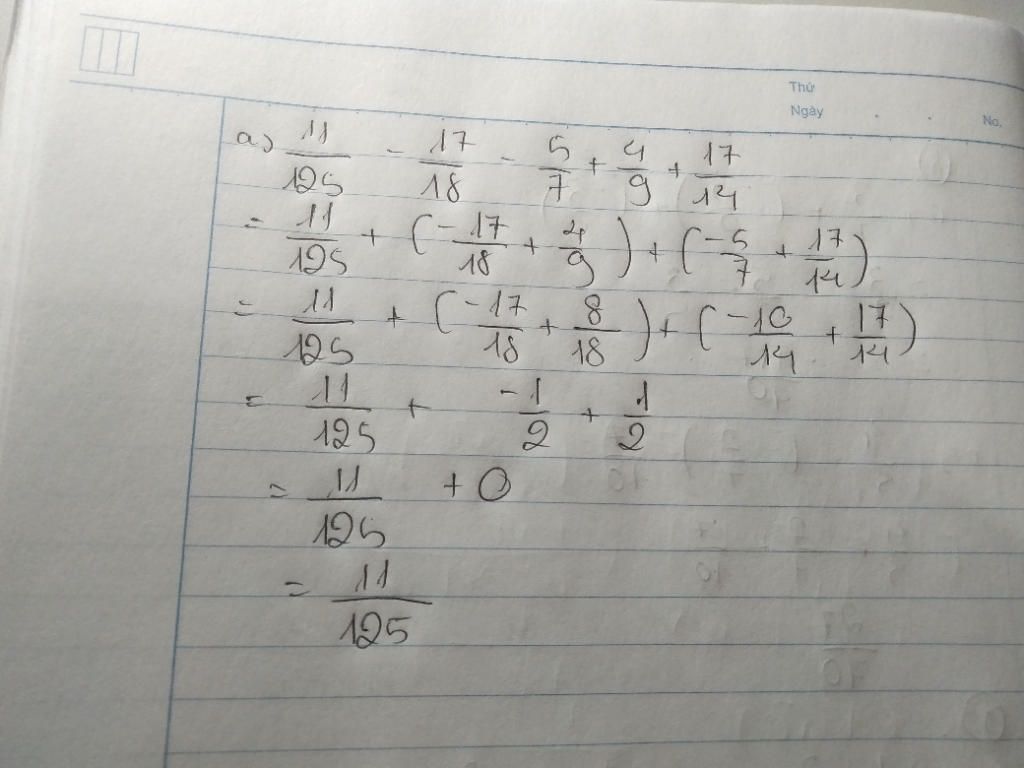 Thứ
Ngày . . No.
a) 11/125 - 17/18 - 5/7 + 4/9 + 17/14
= 11/125 + (-17/18 + 4/9) + (-5/7 + 17/14)
= 11/125 + (-17/18 + 8/18) + (-10/14 + 17/14)
= 11/125 + -1/2 + 1/2
= 11/125 + 0
= 11/125